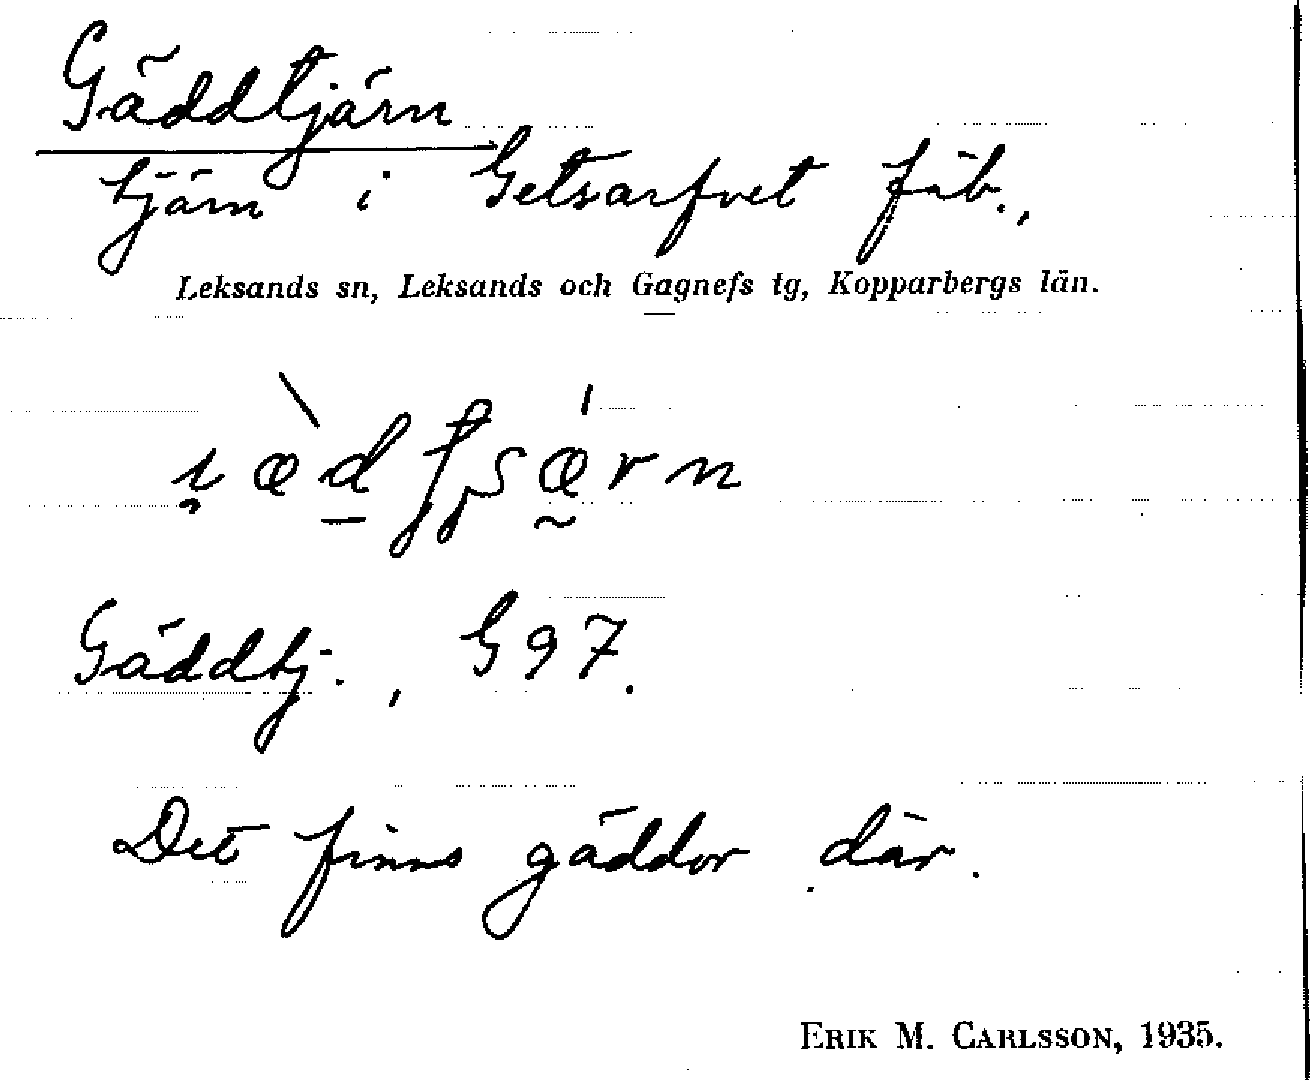 Gäddtjärn
tjärn i Getsarfvet fäb.,
Leksands sn, Leksands och Gagnefs tg, Kopparbergs län.
Gäddtj., G 97.
Det finns gäddor där.
ERIK M. CARLSSON, 1935.